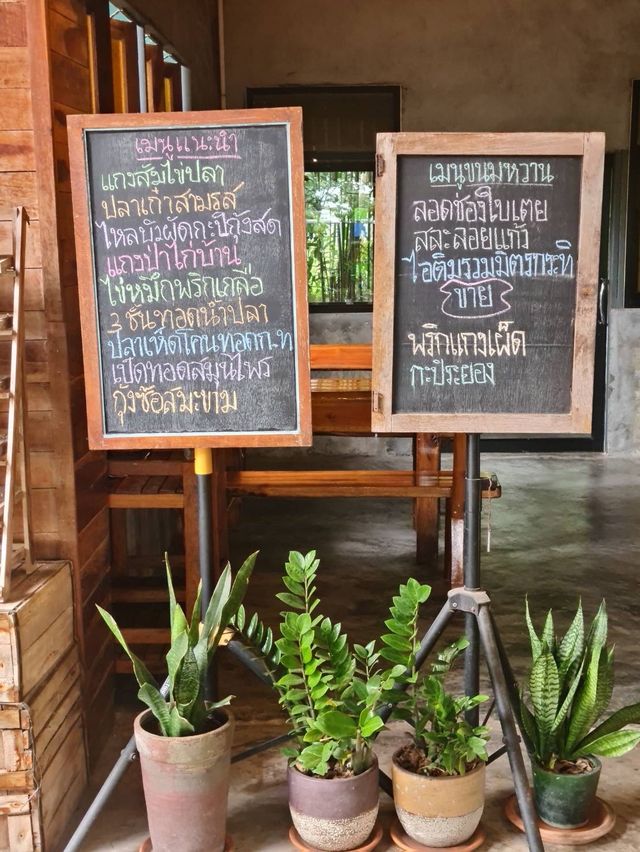 เมนูแนะนำ
แกงส้มไข่ปลา
ปลาเก๋าสามรส
ไหลบัวผัดกะปิกุ้งสด
แกงป่าไก่บ้าน
ไข่หมึกพริกเกลือ
3 ชั้นทอดน้ำปลา
ปลาเห็ดโคนทอดก.ท
เป็ดทอดสมุนไพร
กุ้งซอสมะขาม
เมนูขนมหวาน
ลอดช่องใบเตย
สละลอยแก้ว
ไอติมรวมมิตรกะทิ
ขาย
พริกแกงเผ็ด
กะปิระยอง